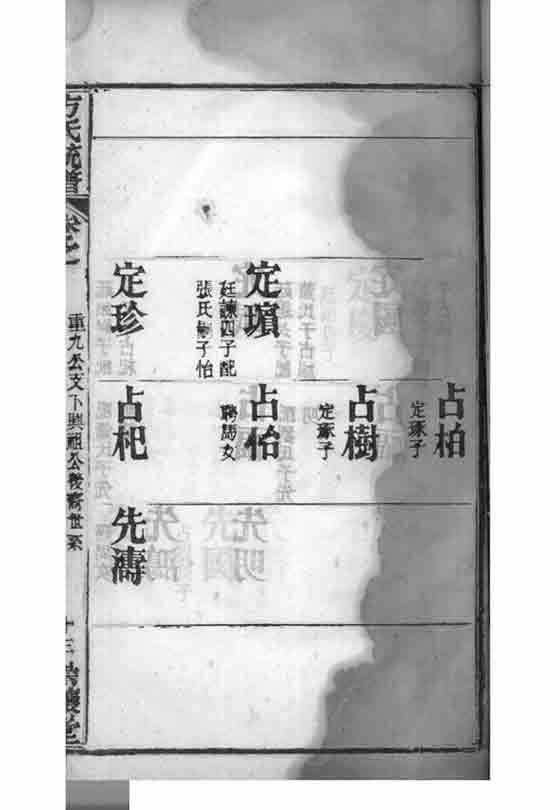 占柏
定琢子
占樹
定琢子
定璸
廷諫四子配
張氏嗣子怡
占怡
聘馬女
定珍
占杞
先濤
方氏統譜
卷之
重九公支下興祖公後裔世系
十三